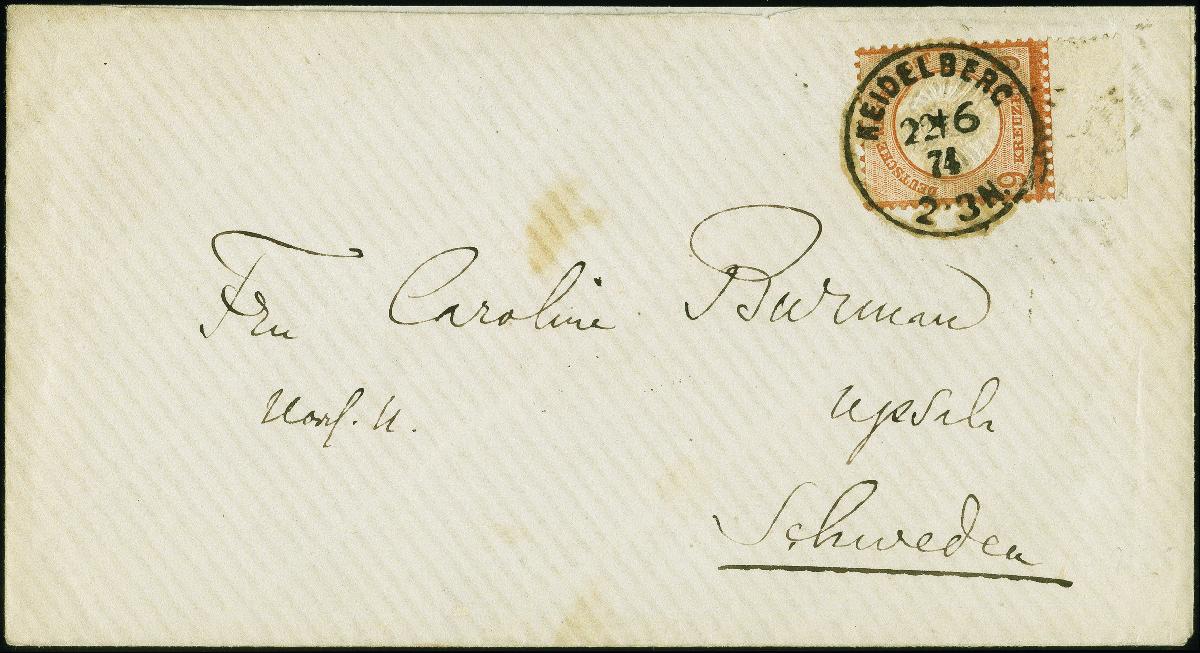 HEIDELBERG
22 6
74
2-3N.
DEUTSCHE
9 KREUZER
Fru Caroline Burman
Upsala
Schweden